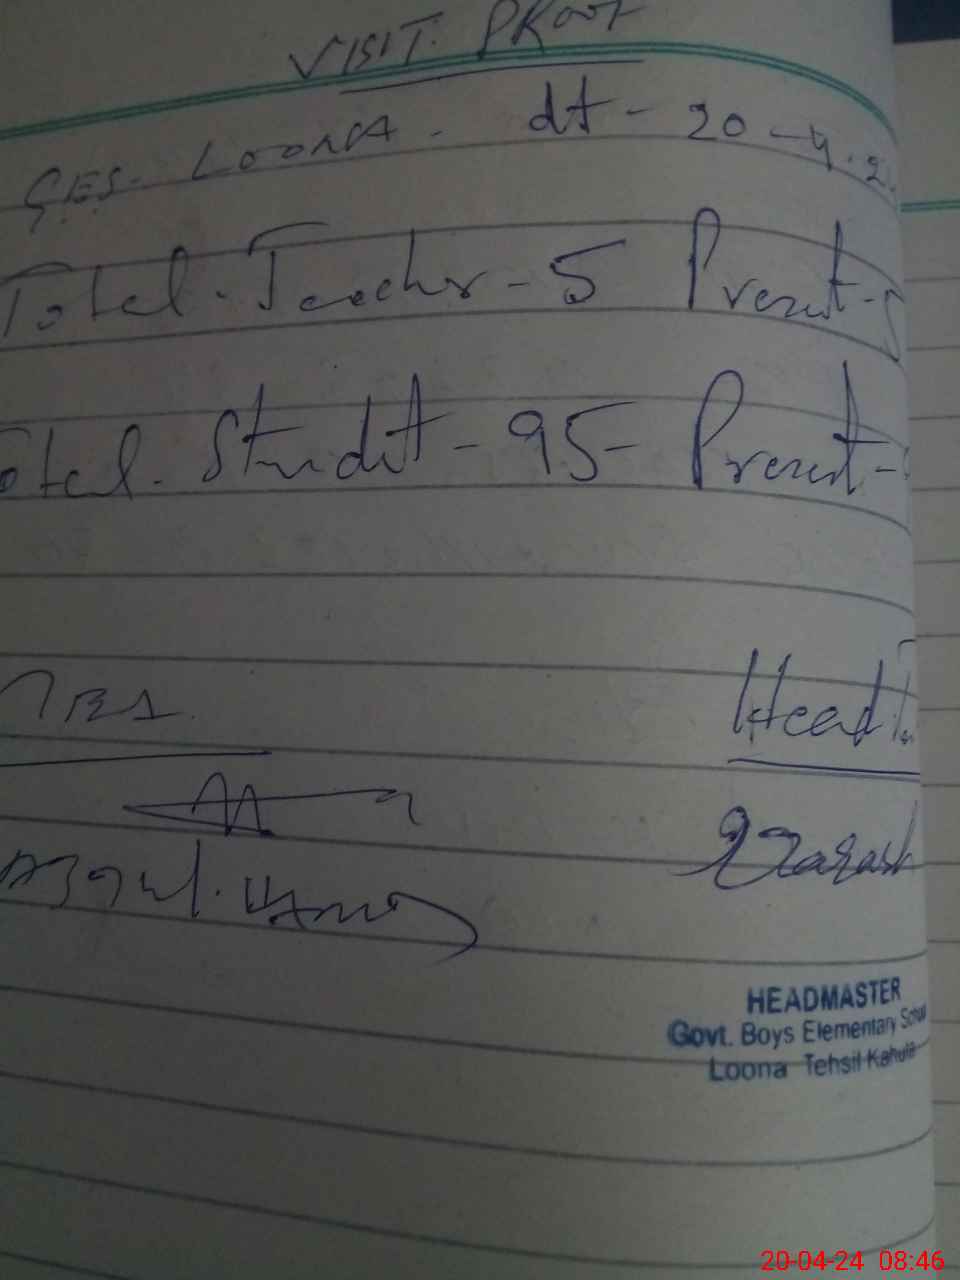 VISIT PROOF
G.E.S. LOONA - dt - 20-4.2
Total. Teacher - 5 Present -
Total. Studt - 95 - Present -
Head T.
HEADMASTER
Govt. Boys Elementary School
Loona Tehsil Kahuta
20-04-24 08:46